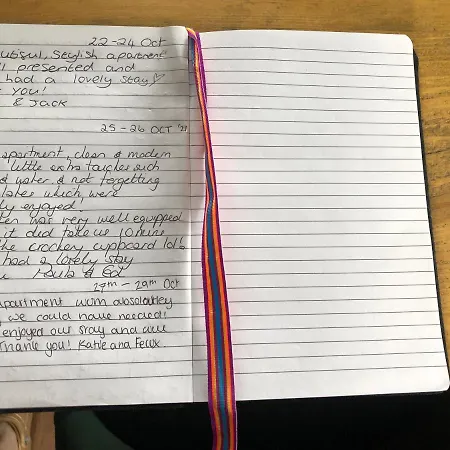 22-24 Oct
utiful, stylish apartment
ll presented and
had a lovely stay
you!
& Jack
25-26 OCT '21
apartment, clean & modern
little extra touches such
& water & not forgetting
lates which were
ly enjoyed!
en was very well equipped
it did take us 10 mins
the crockery cupboard lol!
had a lovely stay
& Ed
27th - 29th Oct
apartment with absolutley
we could have needed!
enjoyed our stay and
Thank you! Katie and Felix